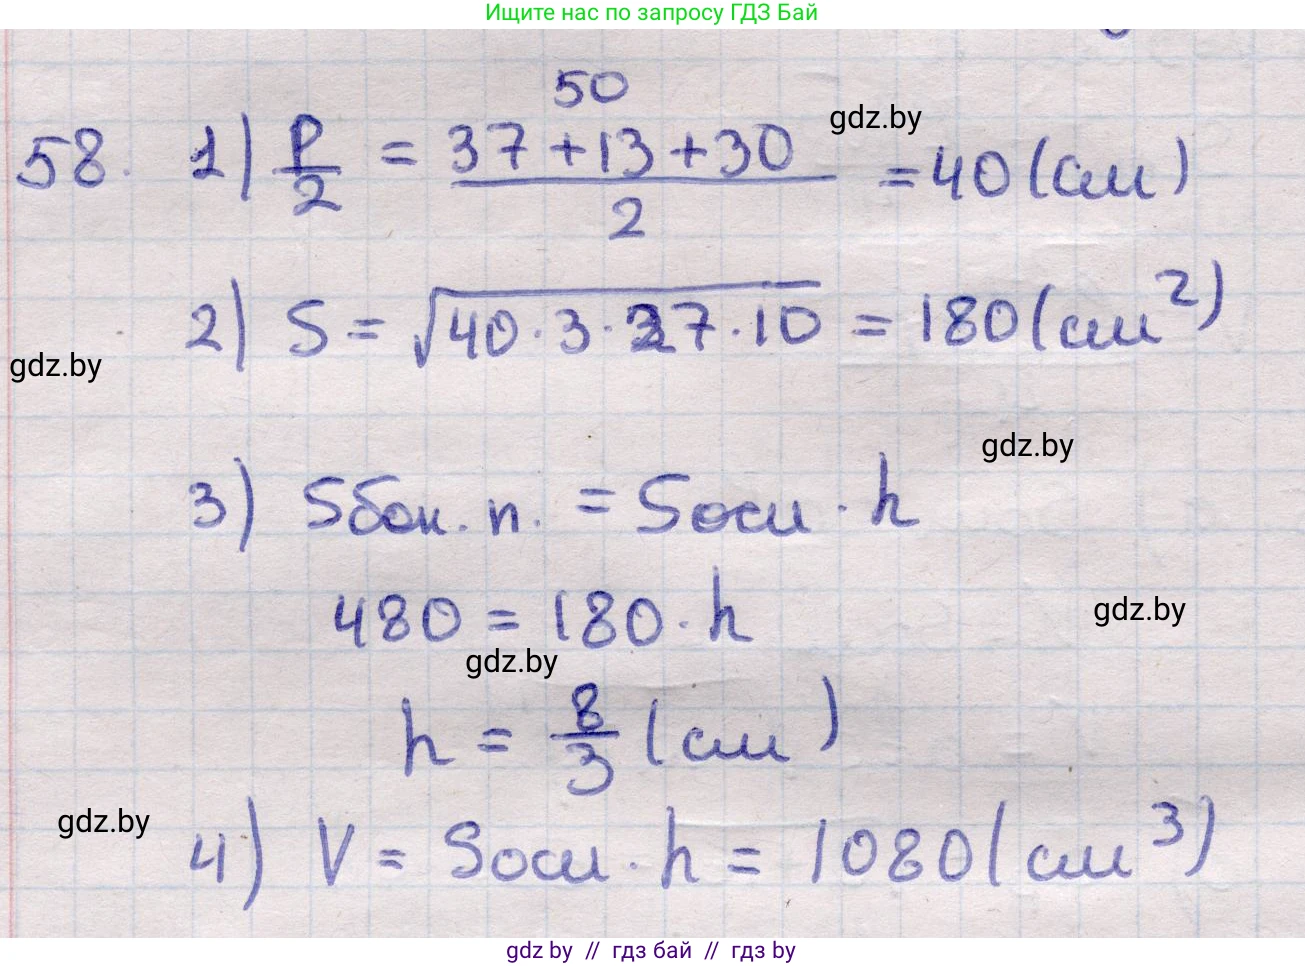 Ищите нас по запросу ГДЗ Бай
50
58. 1) P/2 = (37+13+30)/2 = 40 (см)
gdz.by
2) S = √(40·3·27·10) = 180 (см²)
gdz.by
gdz.by
3) Sбок. п. = Sосн · h
480 = 180 · h
gdz.by
gdz.by
h = 8/3 (см)
gdz.by
4) V = Sосн · h = 1080 (см³)
gdz by // гдз бай // гдз by